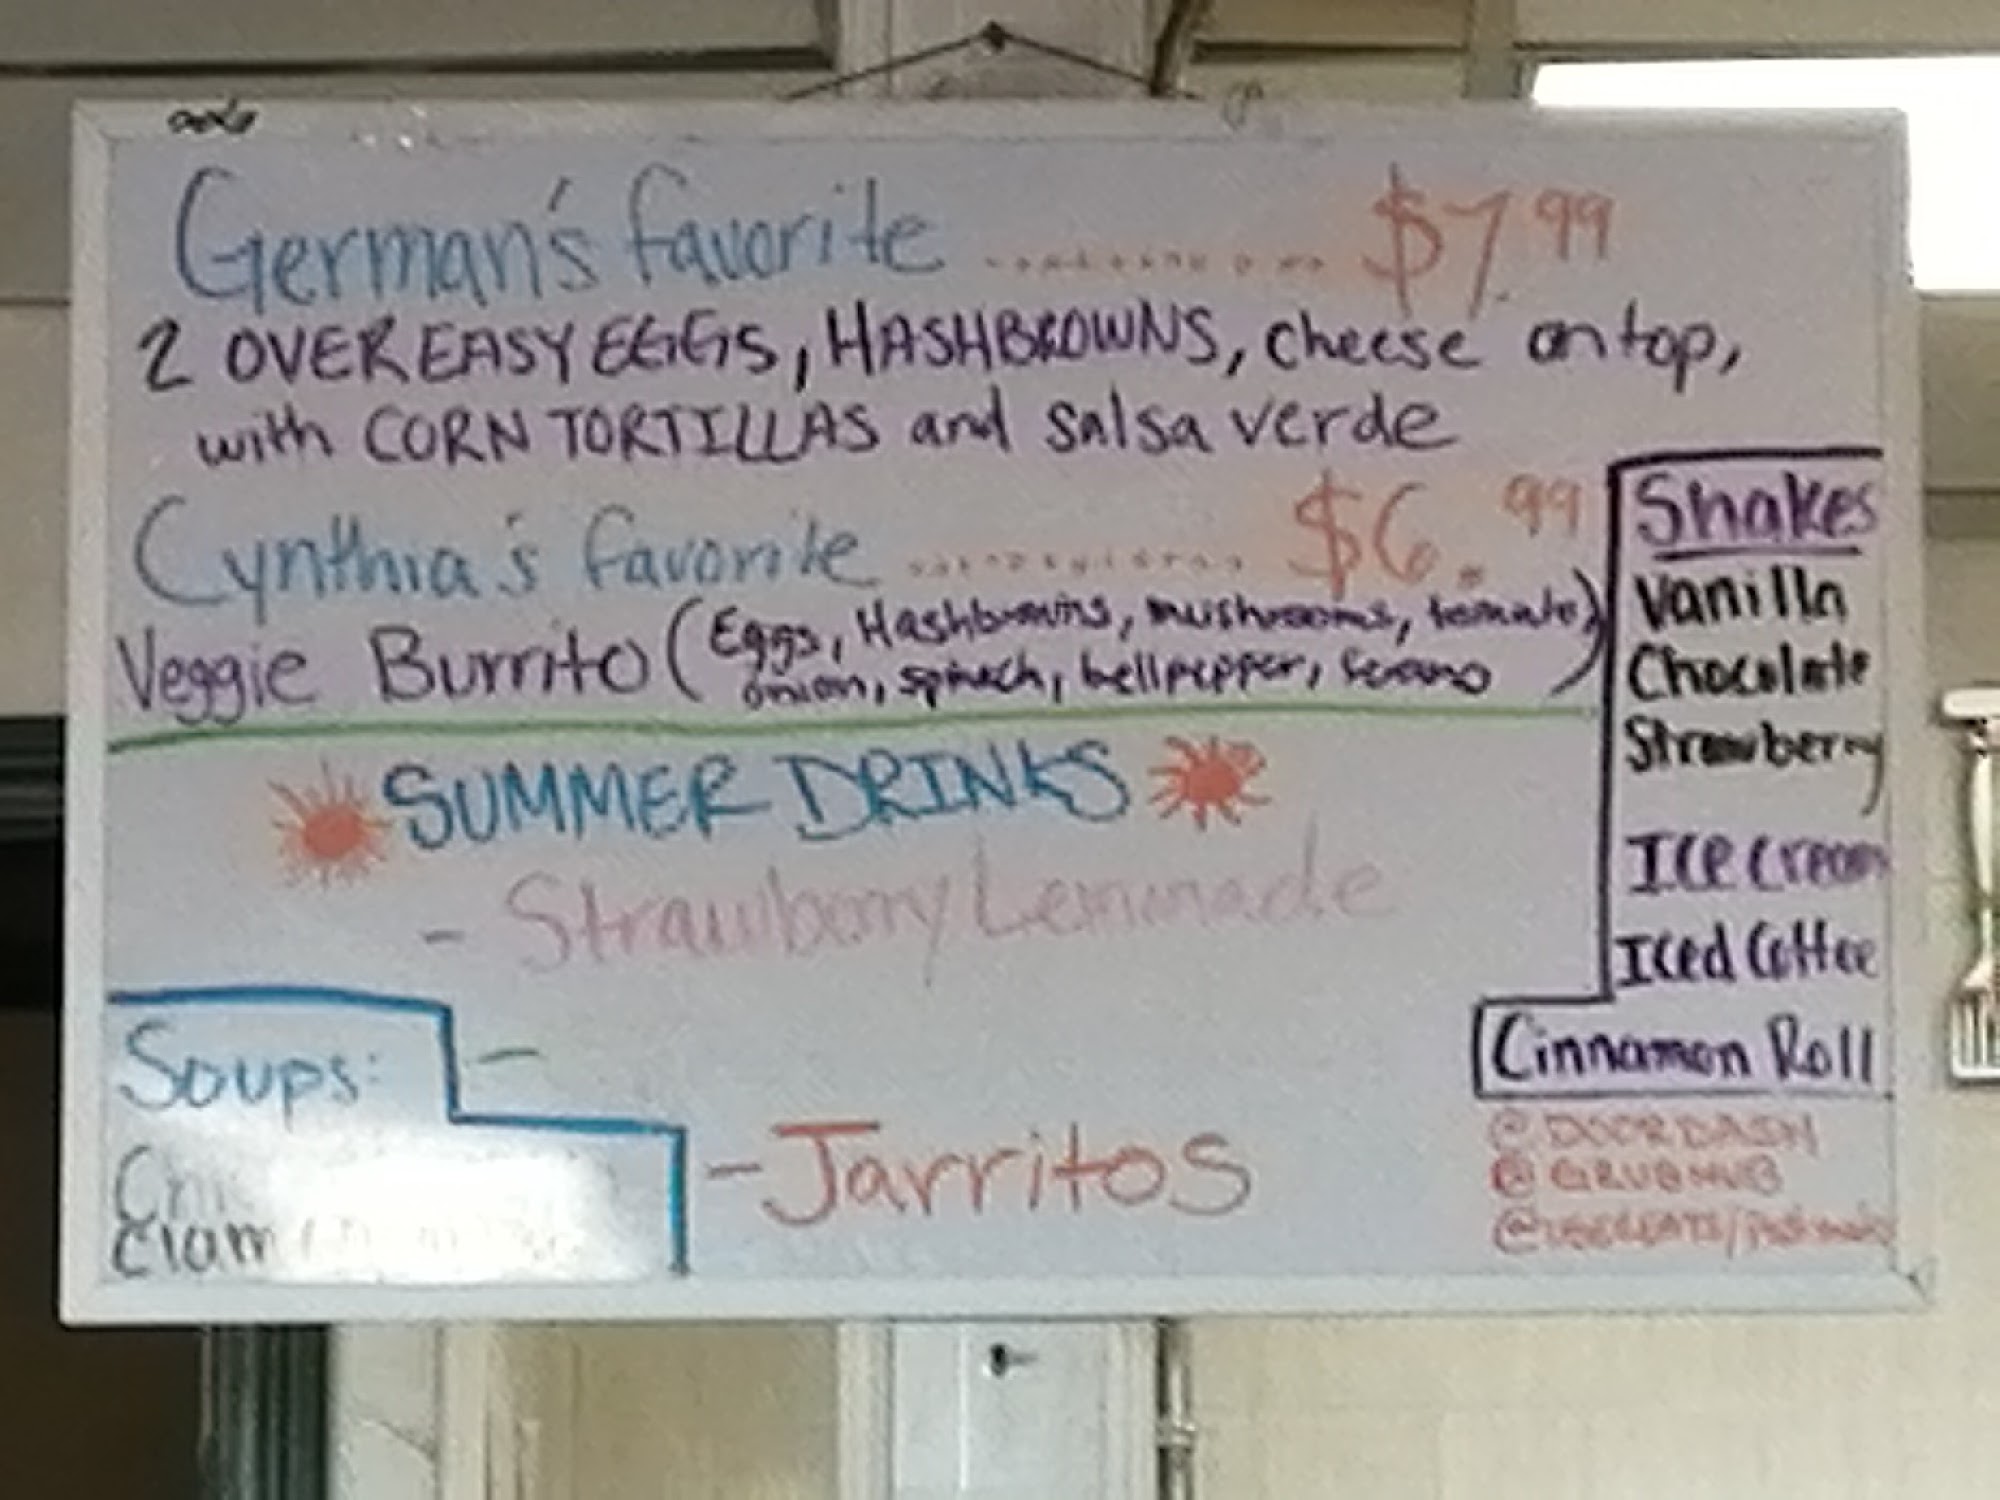 German's favorite ............ $7.99
2 OVER EASY EGGS, HASHBROWNS, cheese on top,
with CORN TORTILLAS and salsa verde
Cynthia's favorite ............ $6.99
Veggie Burrito (Eggs, Hashbrowns, mushrooms, tomato,
onion, spinach, bellpepper, Serano)
SUMMER DRINKS
- Strawberry Lemonade
-
- Jarritos
Soups:
Clam
Shakes
Vanilla
Chocolate
Strawberry
Ice cream
Iced Coffee
Cinnamon Roll
@ DOORDASH
@ GRUBHUB
@ UBEREATS/Postmates